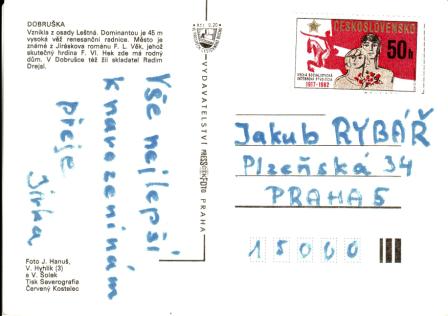 DOBRUŠKA
Vznikla z osady Leštná. Dominantou je 45 m
vysoká věž renesanční radnice. Město je
známé z Jiráskova románu F. L. Věk, jehož
skutečný hrdina F. Vl. Hek zde má rodný
dům. V Dobrušce též žil skladatel Radim
Drejsl.
Vše nejlepší
k narozeninám
přeje
Jirka
Foto J. Hanuš,
V. Hyhlík (3)
a V. Šolek
Tisk Saverografia
Červený Kostelec
VYDAVATELSTVÍ PRESSFOTO PRAHA
ČESKOSLOVENSKO
50 h
VELKÁ SOCIALISTICKÁ
ŘÍJNOVÁ REVOLUCE
1917-1982
Jakub RYBÁŘ
Plzeňská 34
PRAHA 5
15000